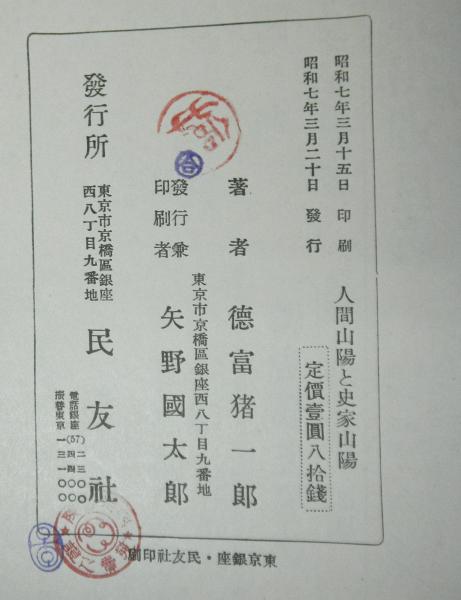 昭和七年三月十五日 印刷
昭和七年三月二十日 發行
人間山陽と史家山陽
定價壹圓八拾錢
著者 德富猪一郎
東京市京橋區銀座西八丁目九番地
發行兼
印刷者 矢野國太郎
發行所 東京市京橋區銀座
西八丁目九番地 民友社
電話銀座(57)
振替東京
東京銀座・民友社印刷